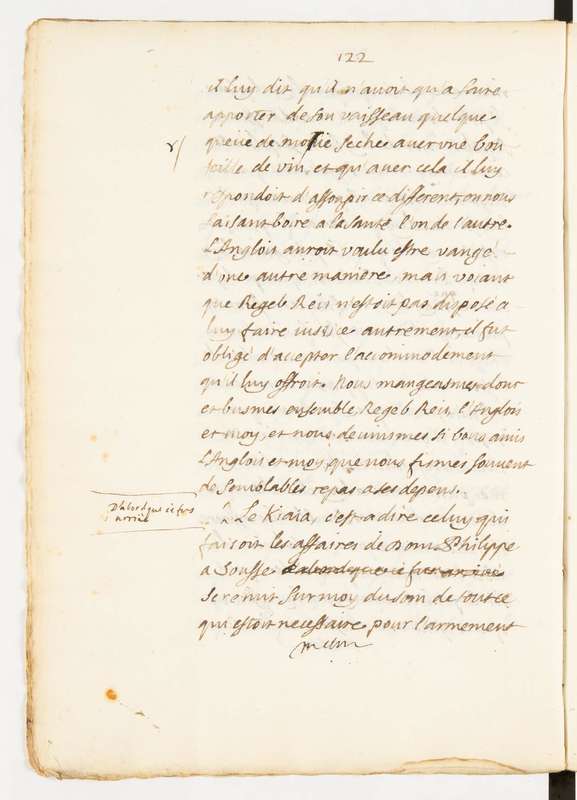 122
il luy dit qu'il n'avoit qu'a faire
apporter de son vaisseau quelque
queüe de morüe seche avec une bou
teille de vin, et qu'avec cela il luy
repondoit d'assoupir ce different, en nous
faisant boire a la santé l'on de l'autre.
L'Anglois auroit voulu estre vangé
d'une autre maniere, mais voiant
que Regeb Reis n'estoit pas disposé a
luy faire iustice autrement, il fut
obligé d'accepter l'accommodement
qu'il luy offroit. Nous mangeasmes donc
et busmes ensemble, Regeb Reis, l'Anglois
et moy, et nous devinsmes si bons amis
L'Anglois et moy, que nous fismes souvent
de semblables repas a ses depens.
D'abord que ie fus
arrivé
Le Kiaia, c'est a dire celuy qui
faisoit les affaires de Dom Philippe
a Sousse d'abord que ie fus arrivé
se remit sur moy du soin de tout ce
qui estoit necessaire pour l'armement